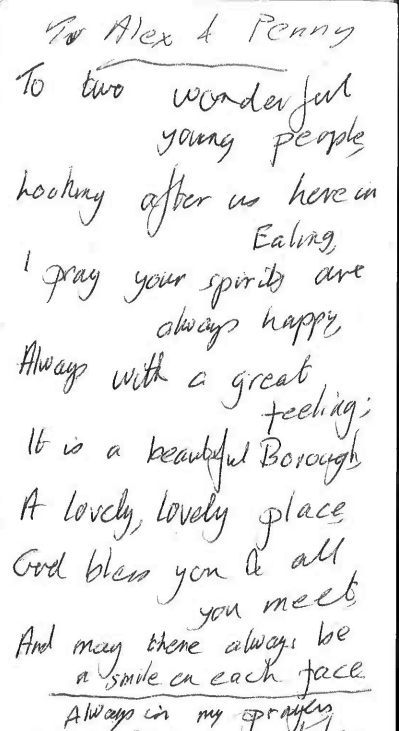 To Alex & Penny
To two wonderful
young people,
Looking after us here in
Ealing,
I pray your spirits are
always happy,
Always with a great
feeling;
It is a beautiful Borough,
A lovely, lovely place,
God bless you & all
you meet,
And may there always be
a smile on each face.
Always in my prayers,